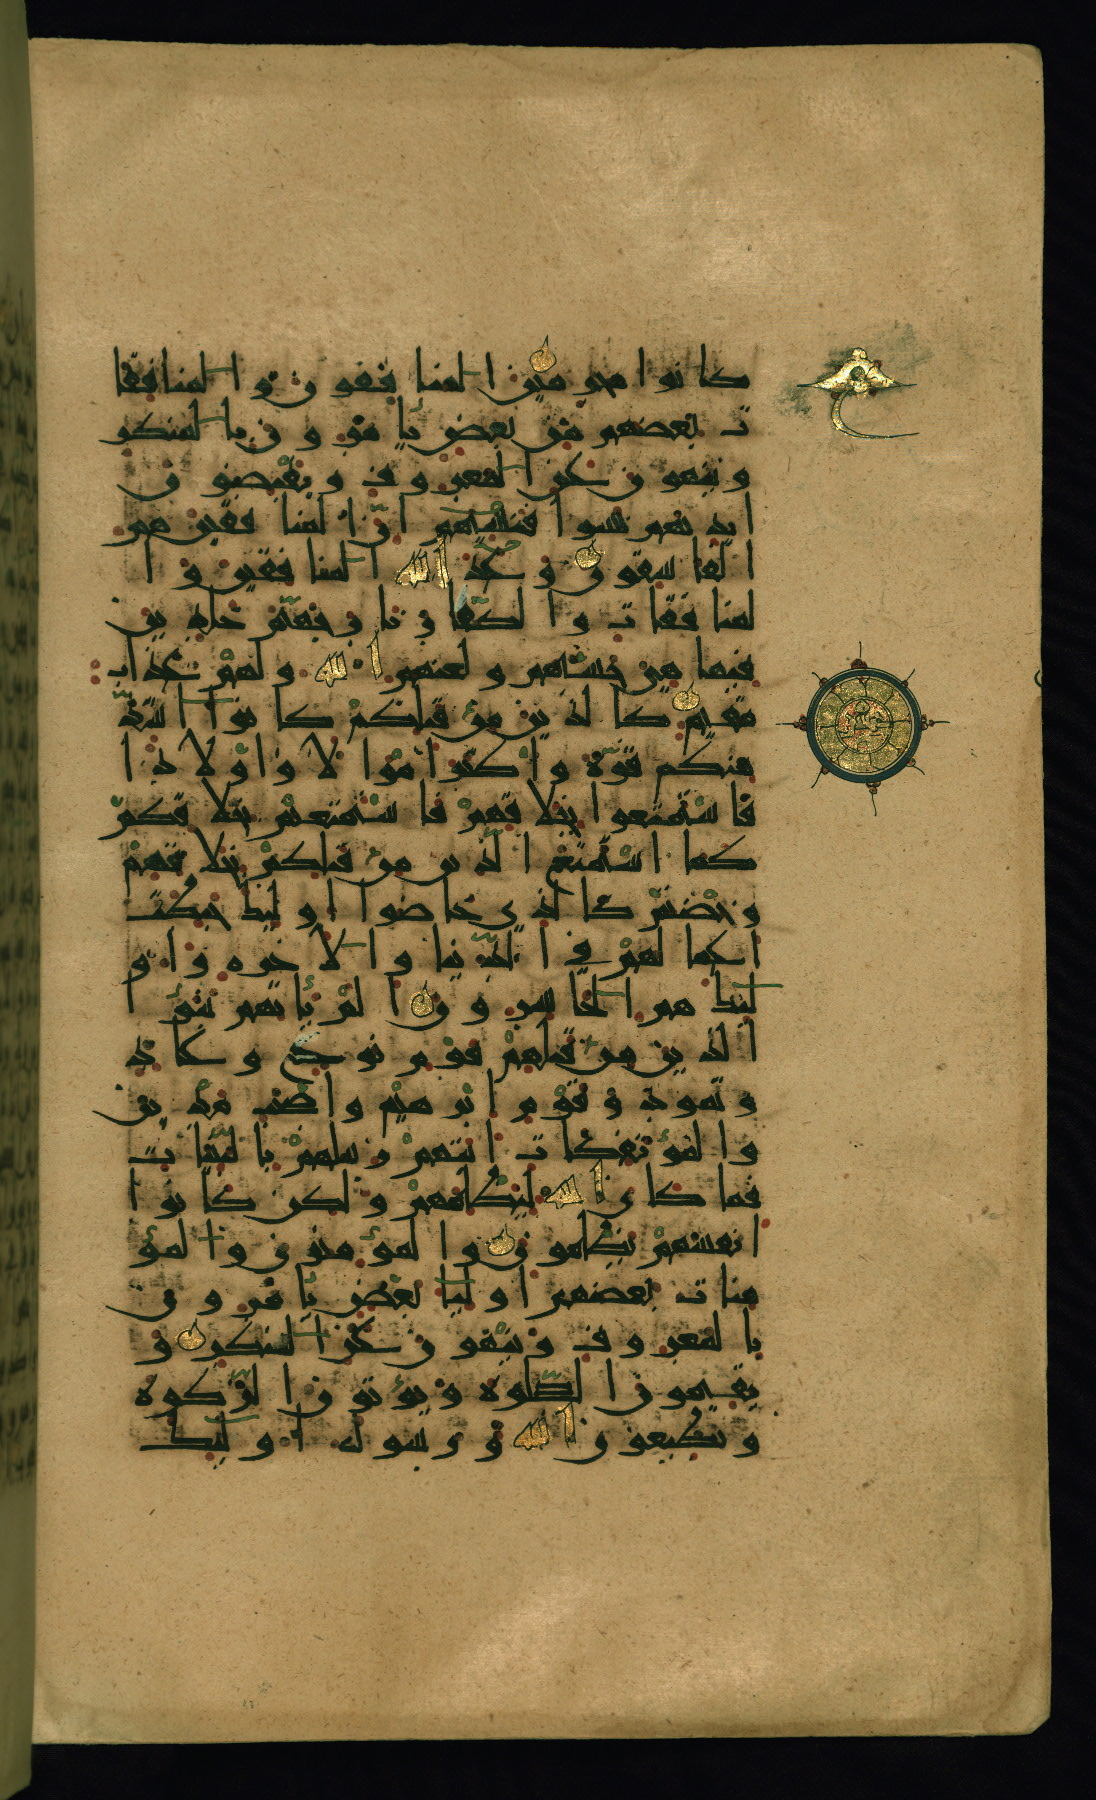 كانوا مجرمين المنافقون والمنافقا
ت بعضهم من بعض يأمرون بالمنكر
وينهون عن المعروف ويقبضون
ايديهم نسوا فنسيهم ان المنافقين هم
الفاسقون وعد الله المنافقين وا
لمنافقات والكفار نار جهنم خلدين
فيها هي حسبهم ولعنهم الله ولهم عذاب
مقيم كالذين من قبلكم كانوا اشد
منكم قوة واكثر اموالا واولادا
فاستمتعوا بخلاقهم فاستمتعتم بخلاقكم
كما استمتع الذين من قبلكم بخلاقهم
وخضتم كالذي خاضوا اوليك حبطت
اعمالهم في الدنيا والاخرة واو
ليك هم الخاسرون الم يأتهم نبؤا
الذين من قبلهم قوم نوح وعاد
وثمود وقوم ابرهيم واصحب مدين
والمؤتفكات اتتهم رسلهم بالبينات
فما كان الله ليظلمهم ولكن كانوا
انفسهم يظلمون والمؤمنون والمؤ
منات بعضهم اوليا بعض يأمرون
بالمعروف وينهون عن المنكر و
يقيمون الصلوة ويؤتون الزكوة
ويطيعون الله ورسوله اوليك